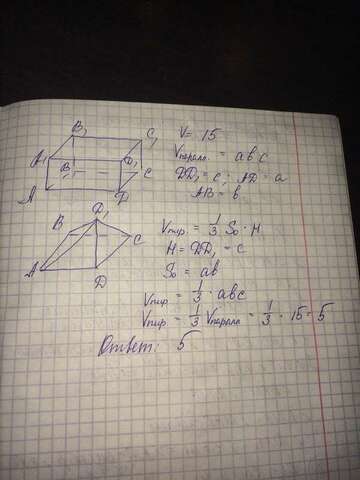 B₁
C₁
A₁
D₁
B
C
A
D
V = 15
Vпарал. = abc
DD₁ = c; AD = a
AB = b
D₁
B
C
A
D
Vпир = 1/3 S₀ · H
H = DD₁ = c
S₀ = ab
Vпир = 1/3 · abc
Vпир = 1/3 Vпарал = 1/3 · 15 = 5
Ответ: 5